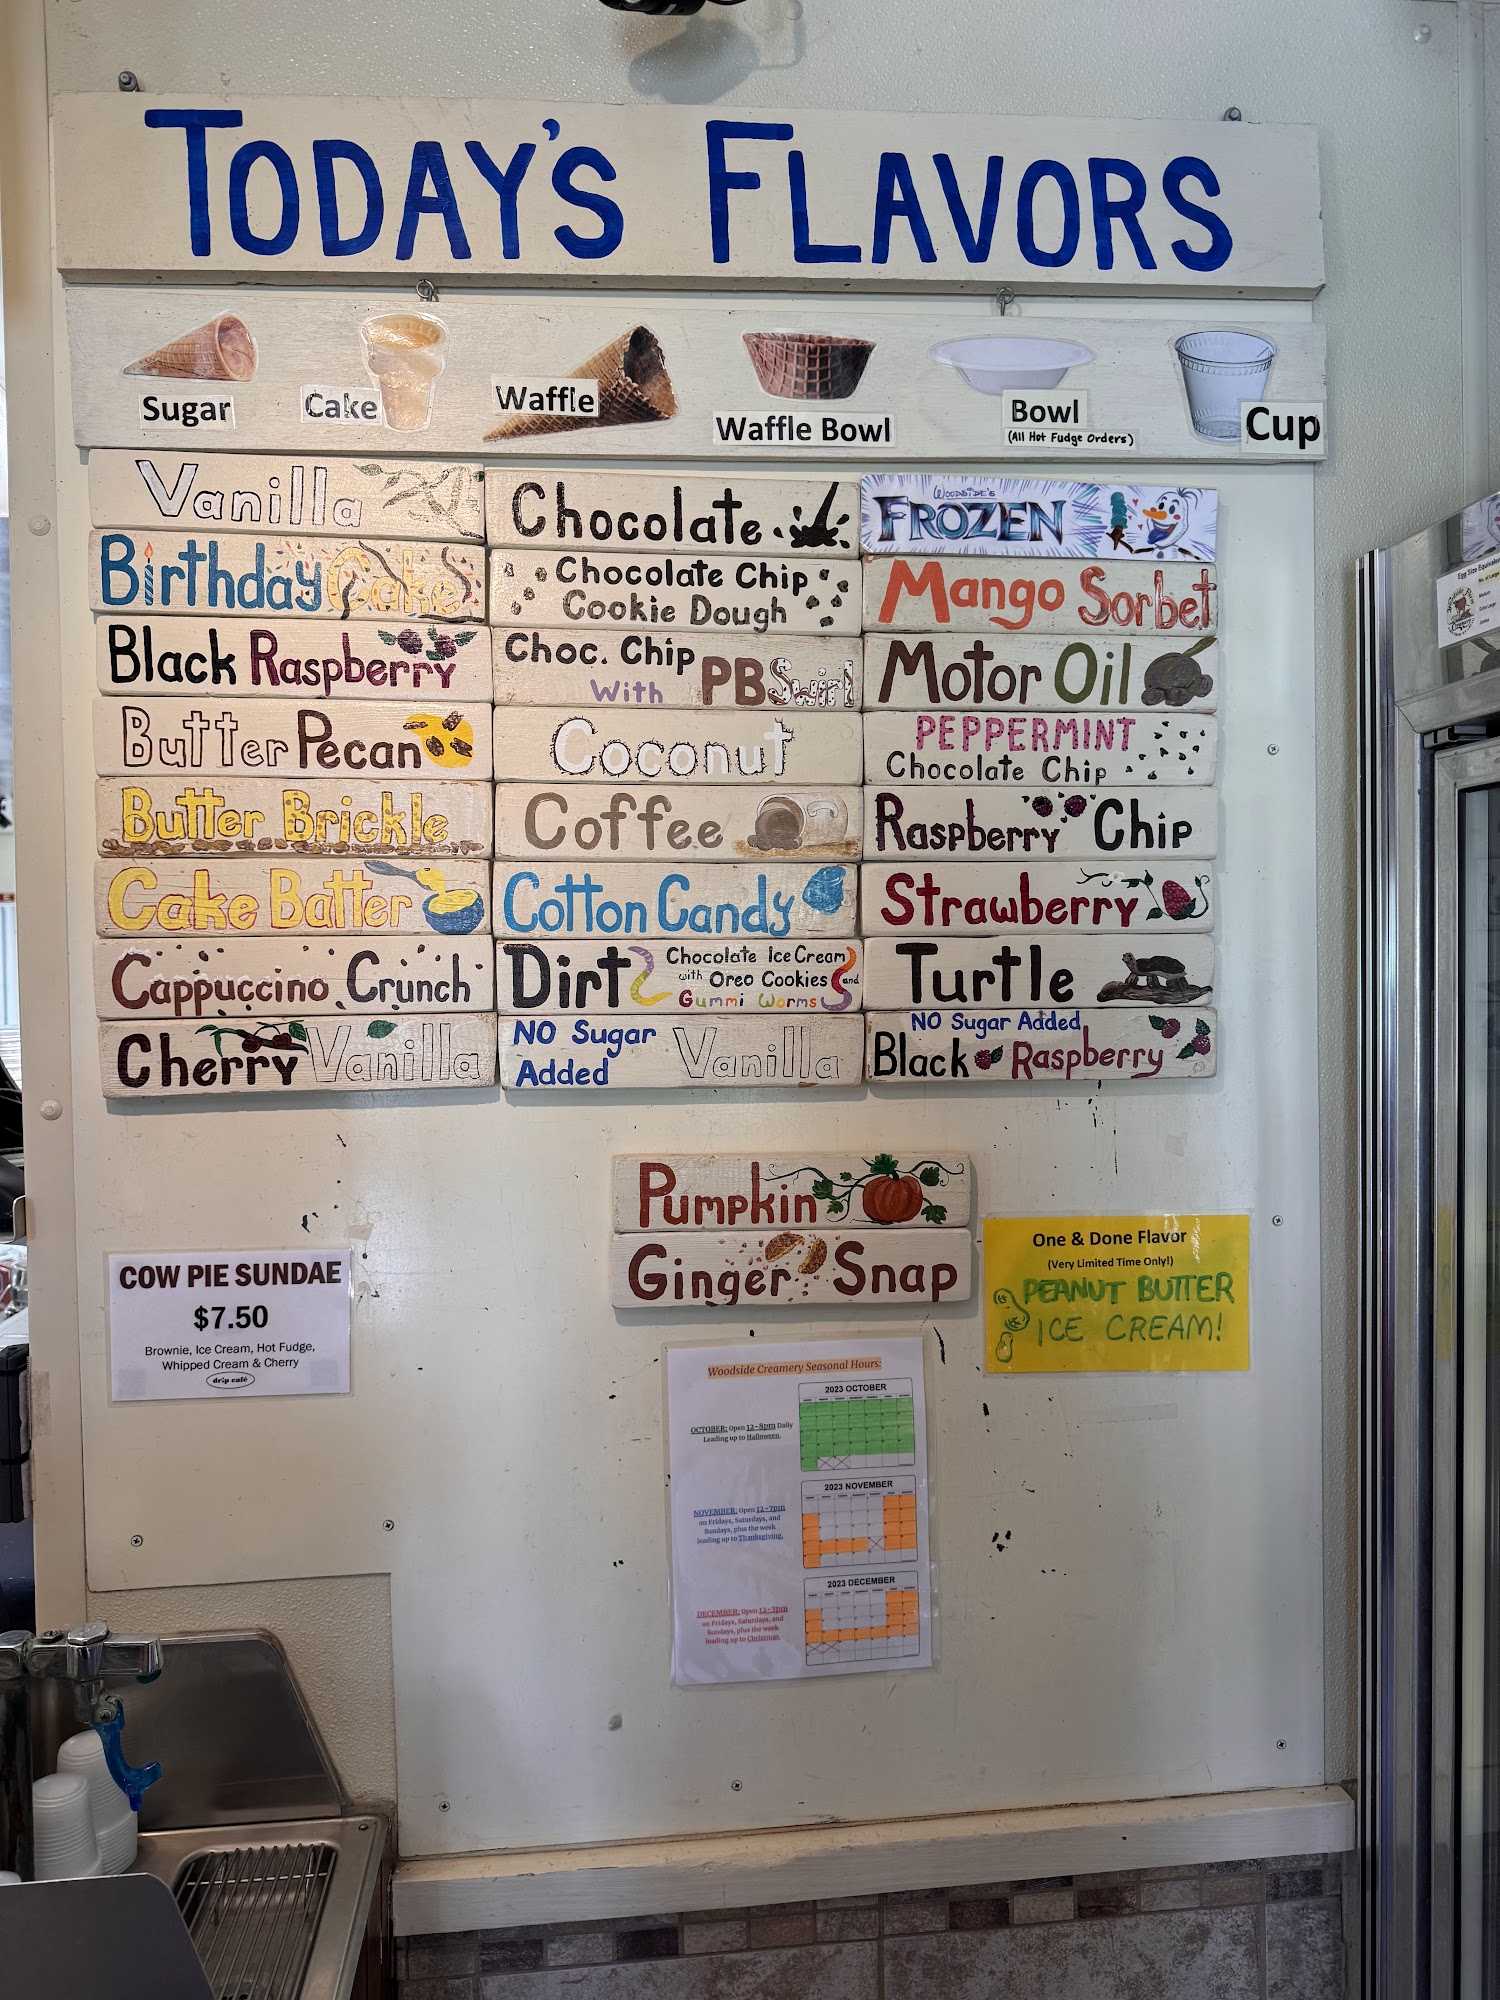 TODAY'S FLAVORS
Sugar
Cake
Waffle
Waffle Bowl
Bowl
(All Hot Fudge Orders)
Cup
Vanilla
Birthday Cake
Black Raspberry
Butter Pecan
Butter Brickle
Cake Batter
Cappuccino Crunch
Cherry Vanilla
Chocolate
Chocolate Chip
Cookie Dough
Choc. Chip
With PB Swirl
Coconut
Coffee
Cotton Candy
Dirt
Chocolate Ice Cream
with Oreo Cookies and
Gummi Worms
NO Sugar
Added Vanilla
WOODSIDE'S
FROZEN
Mango Sorbet
Motor Oil
PEPPERMINT
Chocolate Chip
Raspberry Chip
Strawberry
Turtle
NO Sugar Added
Black Raspberry
Pumpkin
Ginger Snap
COW PIE SUNDAE
$7.50
Brownie, Ice Cream, Hot Fudge,
Whipped Cream & Cherry
drip café
One & Done Flavor
(Very Limited Time Only!)
PEANUT BUTTER
ICE CREAM!
Woodside Creamery Seasonal Hours:
OCTOBER: Open 12-8pm Daily
Leading up to Halloween.
2023 OCTOBER
NOVEMBER: Open 12-7pm
on Fridays, Saturdays, and
Sundays, plus the week
leading up to Thanksgiving.
2023 NOVEMBER
DECEMBER: Open 12-7pm
on Fridays, Saturdays, and
Sundays, plus the week
leading up to Christmas.
2023 DECEMBER